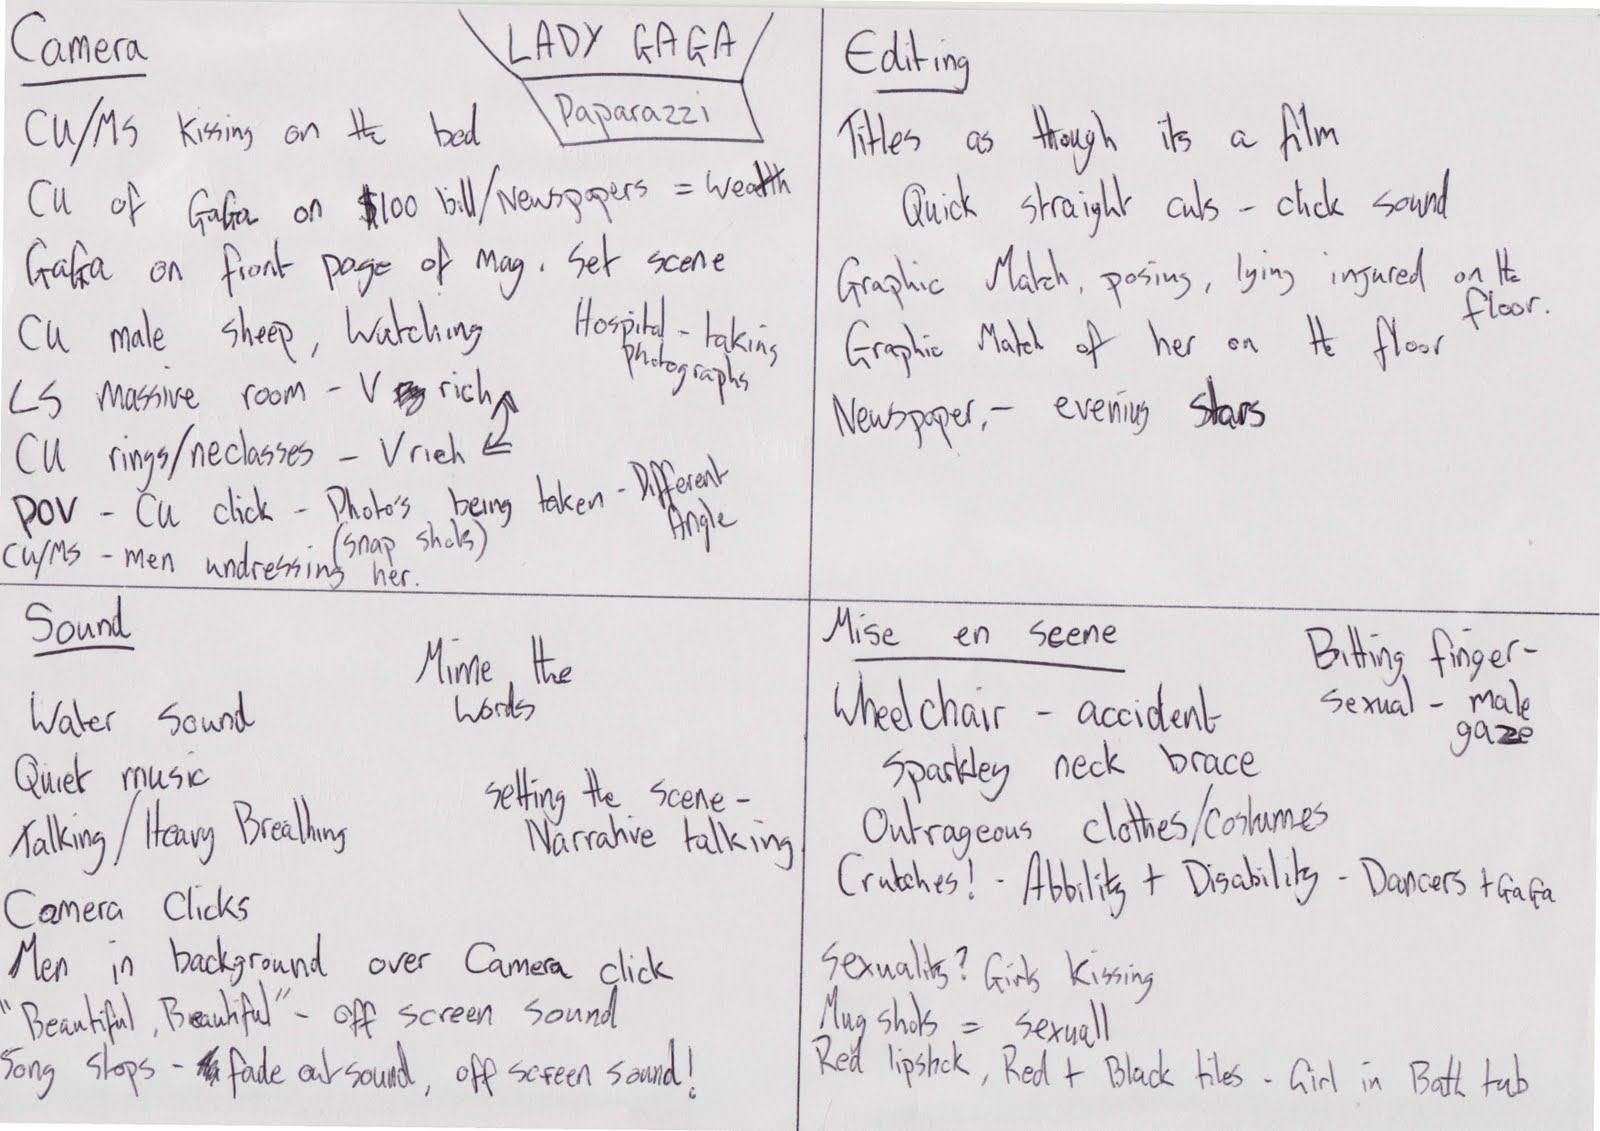 Camera
LADY GAGA
Paparazzi
CU/MS Kissing on the bed
CU of GaGa on $100 bill/Newspapers = wealth
GaGa on front page of mag. Set scene
CU male sheep, Watching
Hospital - taking
photographs
LS Massive room - V rich
CU rings/neclasses - V rich
POV - CU click - Photo's being taken - Different
Angle
(snap shots)
CU/MS - men undressing her.
Editing
Titles as though its a film
Quick straight cuts - click sound
Graphic Match, posing, lying injured on the
floor.
Graphic Match of her on the floor
Newspaper, - evening stars
Sound
Mime the
words
Water sound
Quiet music
setting the scene -
Narrative talking
Talking/Heavy Breathing
Camera Clicks
Men in background over Camera click
"Beautiful, Beautiful" - off screen sound
Song stops - fade out sound, off screen sound!
Mise en scene
Bitting finger -
sexual - male
gaze
Wheelchair - accident
Sparkley neck brace
Outrageous clothes/costumes
Crutches! - Abbility + Disability - Dancers + GaGa
Sexuality? Girls Kissing
Mug shots = sexuall
Red lipstick, Red + Black tiles - Girl in Bath tub